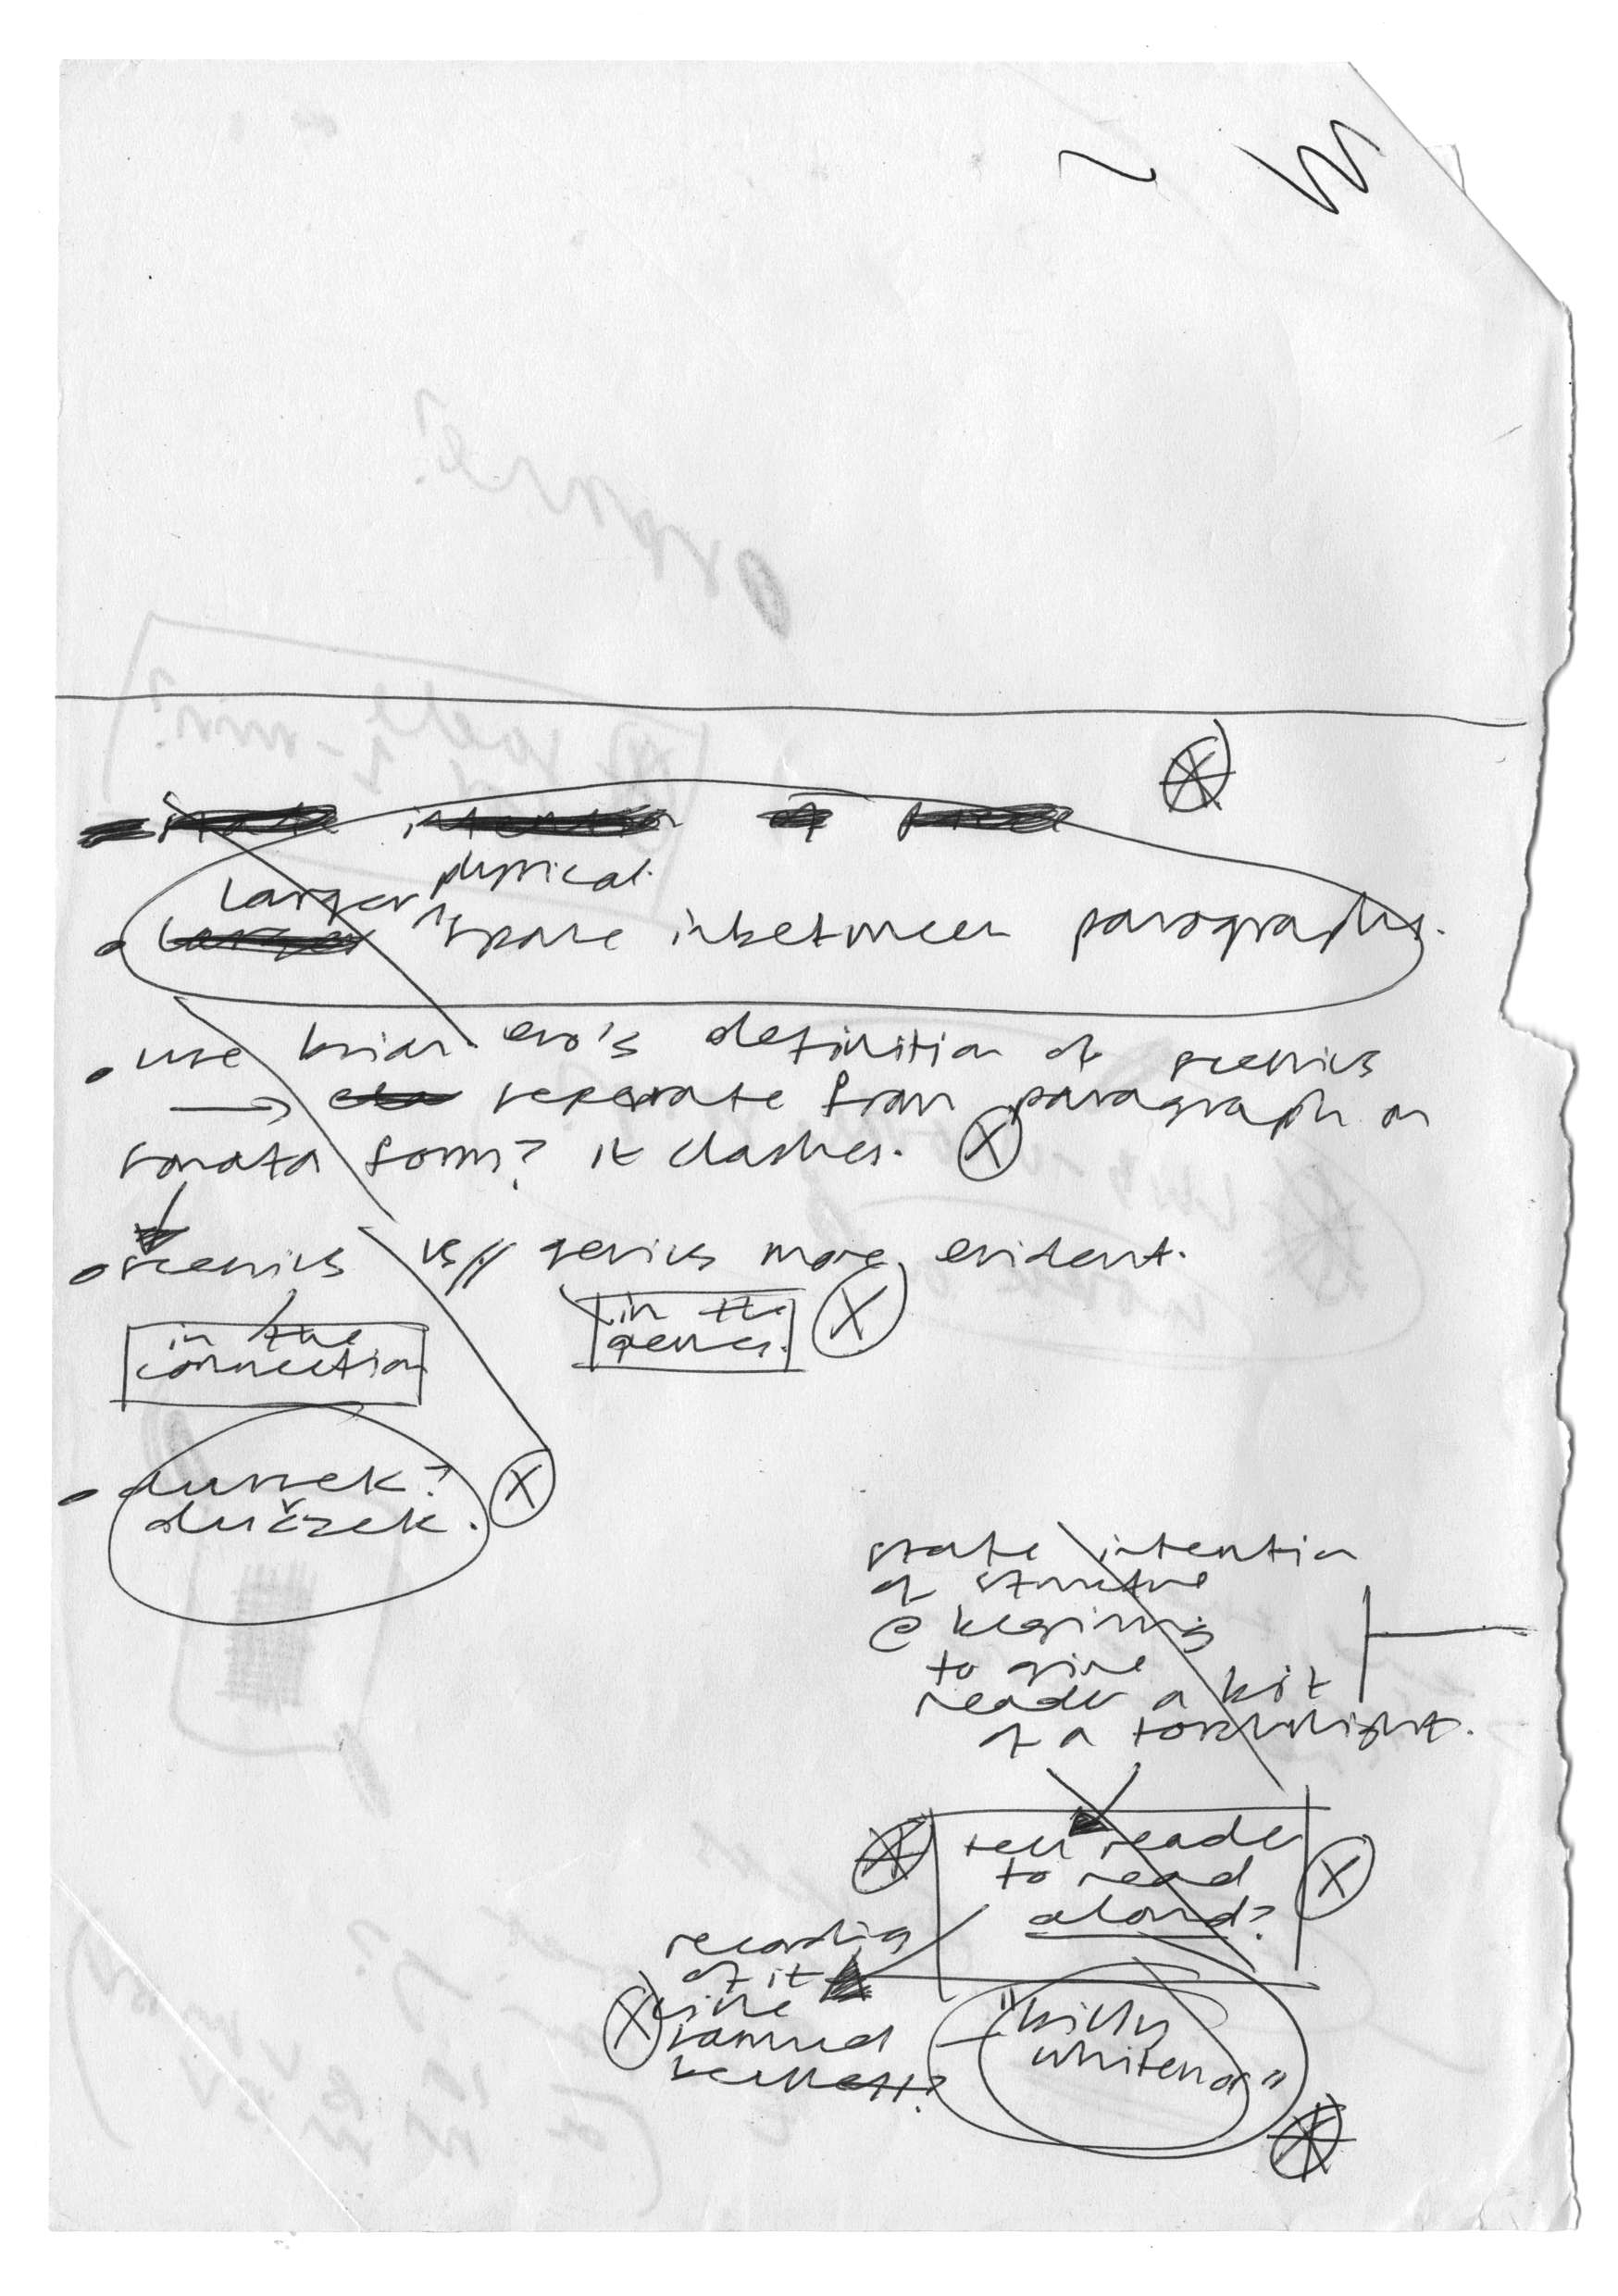 larger physical
space inbetween paragraphs.
use brian eno's definition of scenius
→ seperate from paragraph on
sonata form? it clashes.
scenius vs// genius more evident.
in the
connection
in the
genes.
dussek?
state intention
of structure
@ begining
to give
reader a bit
of a torchlight.
tell reader
to read
aloud?
recording
of it
like
samuel
beckett?
"billy
whitelaw"